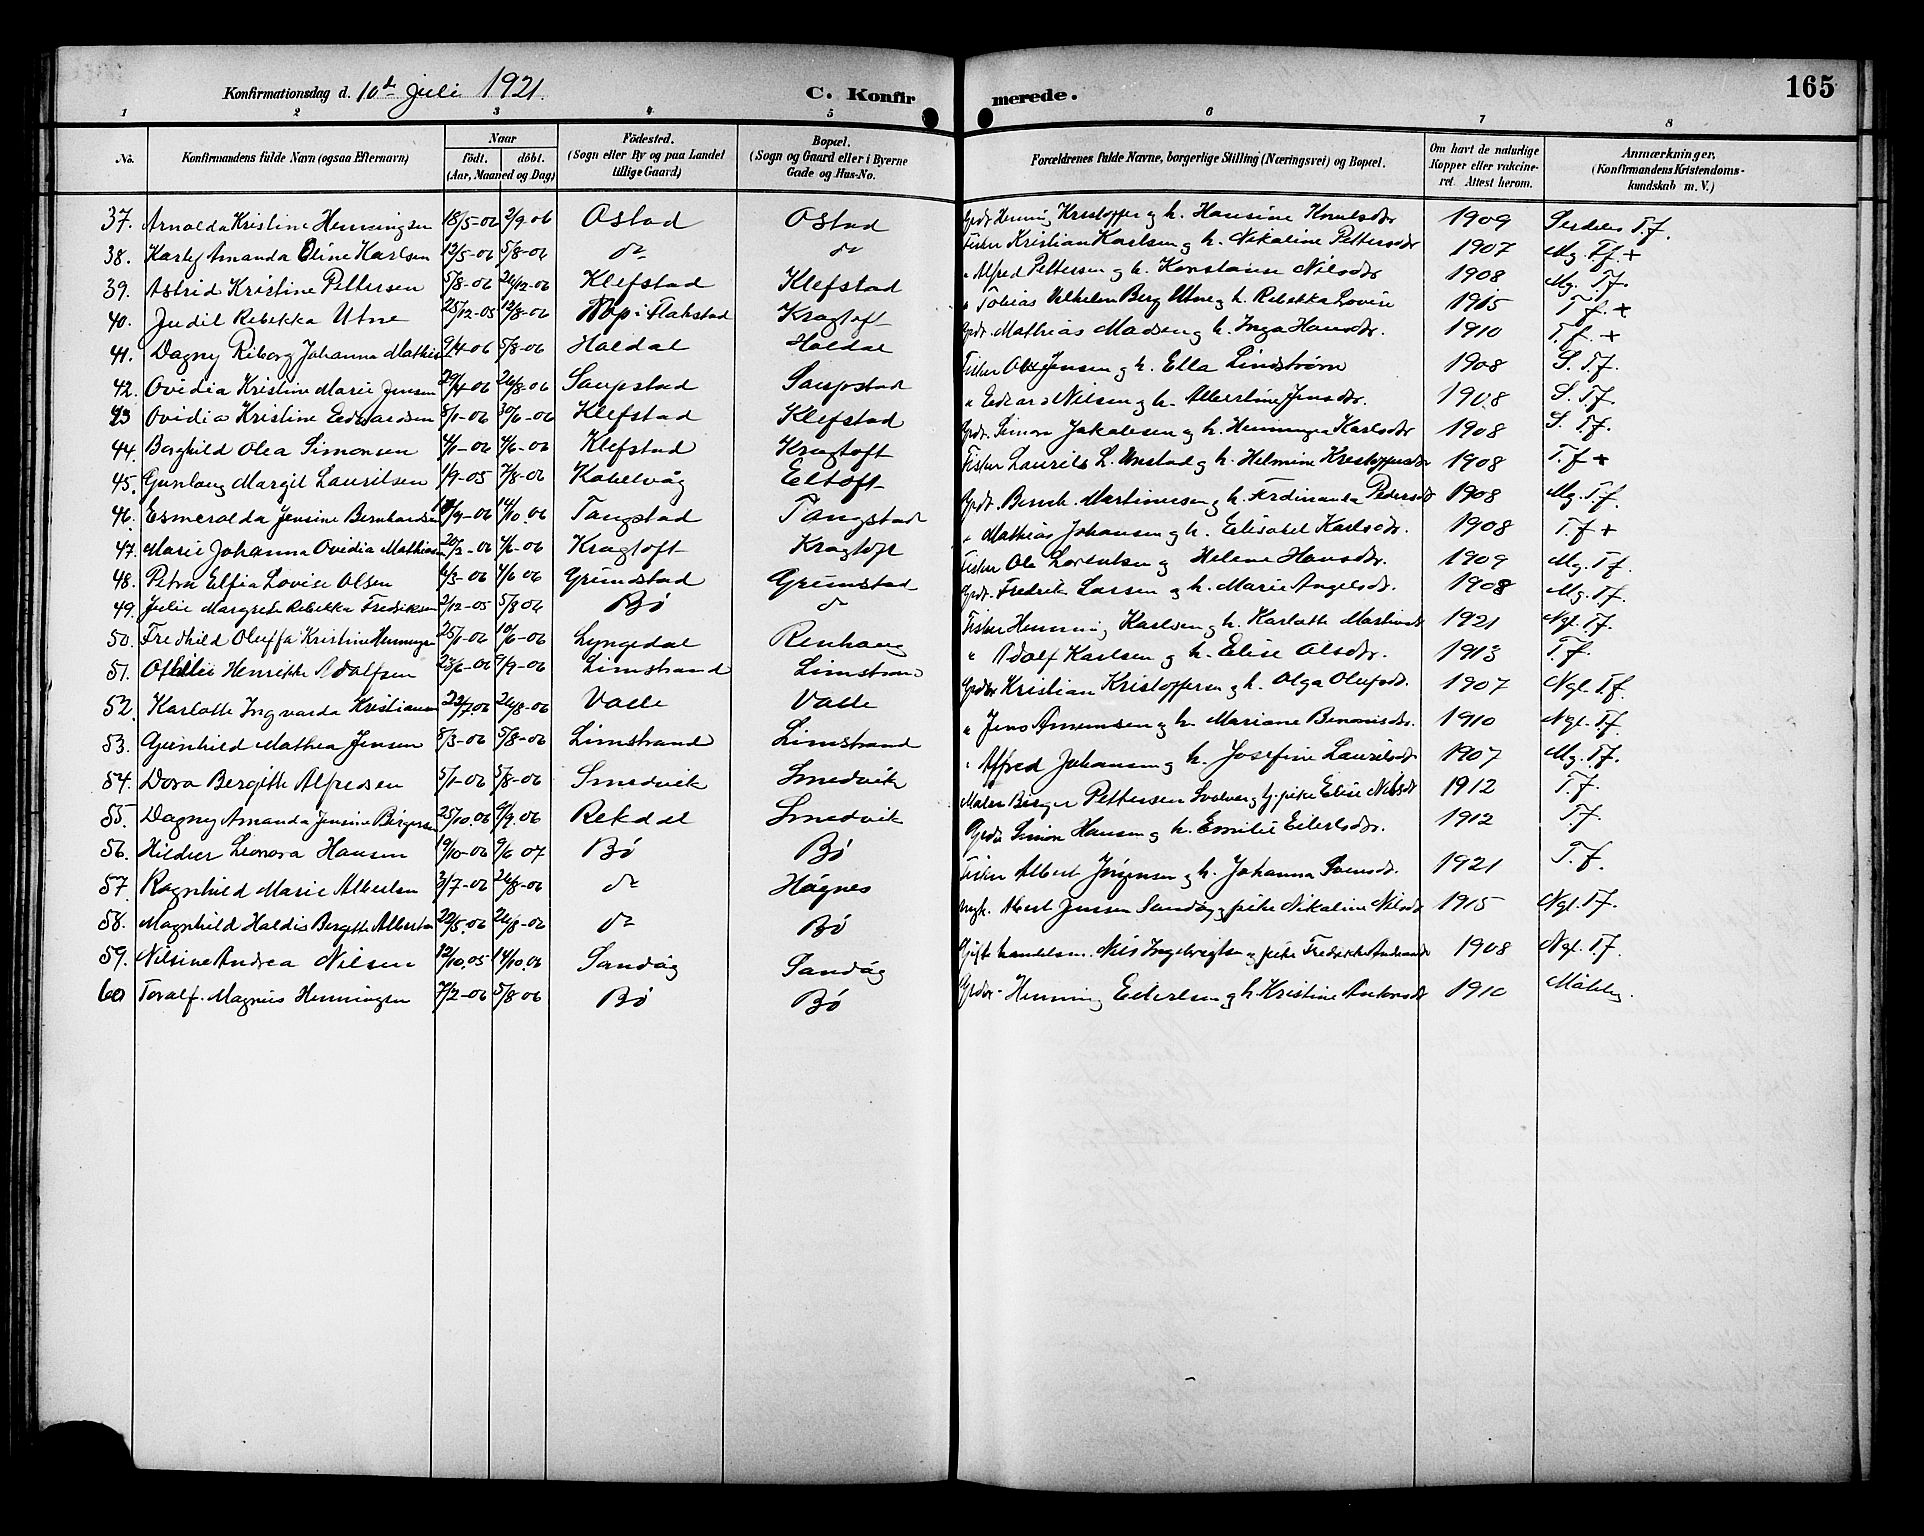 Konfirmationsdag d. 10de Juli 1921. C. Konfirmerede. 165
1 2 3 4 5 6 7 8
No. Konfirmandens fulde Navn (ogsaa Efternavn) Naar født. døbt. (Aar, Maaned og Dag) Födested. (Sogn eller By og paa Landet tillige Gaard) Bopæl. (Sogn og Gaard eller i Byerne Gade og Hus-No. Forældrenes fulde Navne, borgerlige Stilling (Næringsvei) og Bopæl. Om havt de naturlige Kopper eller vakcineret. Attest herom. Anmærkninger, (Konfirmandens Kristendomskundskab m. V.)
37. Arnolda Kristine Henningsen 18/5-06 2/9-06 Ostad Ostad Henning Kristoffer og h. Hansine 1909 T.f.
38. Karly Amanda Oline Karlsen 12/5-06 5/8-06 do do Fisker Kristian Karlsen og h. Nikoline Pettersdtr 1907 Mg. T.f. +
39. Astrid Kristine Pettersen 5/8-06 26/12-06 Klefstad Klefstad " Alfred Pettersen og h. Konstanse Nilsdtr 1908 Mg. T.f.
40. Judit Rebekka Utne 25/12-05 12/8-06 Nap i Flakstad Kragtoft " Tobias Vilhelm Berg Utne og h. Rebekka Lovise 1915 T.f. +
41. Dagny Riborg Johanna Mathis 9/4-06 5/8-06 Haldal Haldal Grdr. Mathias Madsen og h. Inga Hansdtr. 1910 T.f. +
42. Ovidia Kristine Marie Jensen 29/4-06 26/8-06 Saupstad Saupstad Fisker Jensen og h. Ella Lindstrøm 1908 S. T.f.
43 Ovidia Kristine Edvardsen 8/1-06 30/6-06 Klefstad Klefstad " Edvard Nilsen og h. Albertine Jensdtr. 1908 S. T.f.
44. Borghild Olea Simonsen 4/1-06 4/6-06 Klefstad Kragtoft Grdr. Simon Jakobsen og h. Henningea Karlsdtr 1908 S. T.f.
45. Gunlaug Margit Lauritsen 1/9-05 7/8-06 Kabelvåg Eltoft Fisker Laurits L. Unstad og h. Helmine Kristoffersdtr 1908 T.f +
46. Esmeralda Jensine Bernhardsen 14/10.06 Tangstad Tangstad Grdr. Bernh. Martinussen og h. Ferdinanda Pedersdtr 1908 Mg. T.f.
47. Marie Johanna Ovidia Mathiassen 20/2-06 4/6-06 Kragtoft Kragtoft " Mathias Johansen og h. Elisabet Karlsdtr. 1908 T.f +
48. Petra Elfia Lovise Olsen 6/3-06 4/6 06 Grunstad Grunstad Fisker Ole Lorentsen og Helene Hansdtr. 1909 Mg. T.f.
49. Julie Margrete Rebekka Fredriksen 2/12-05 5/8 06 Bø do Grdr. Fredrik Larsen og h. Marie Angelsdtr. 1908 Mg. T.f.
50. Fredhild Oluffa Kristine Henningsen 25/1-06 10/6-06 Lyngedal Renhaug Fisker Henning Karlsen og h. Karlotte Martinsdtr 1921 Ngl. T.f.
51. Otilie Henrikke Adolfsen 23/6-06 9/9-06 Limstrand Limstrand " Adolf Karlsen og h. Elise Olsdtr. 1913 T.f.
52. Karlotte Ingvarda Kristiansen 22/7.06 26/8-06 Valle Valle Grdbr Kristian Kristoffersen og h. Olga Olufsdtr. 1907 Ngl. T.f.
53. Gunhild Mathea Jensen 8/3-06 5/8-06 Limstrand Limstrand " Jens og h. Mariane Benonisdtr. 1910 Ngl. T.f.
54. Dora Bergitte Alfredsen 5/1-06 5/8-06 Smedvik Smedvik " Alfred Johansen og h. Josefine Lauritsdtr 1907 Mg. T.f.
55. Dagny Amanda Jensine Birgersen 25/10.06 9/9.06 Rekdal Smedvik Maler Birger Pettersen Svolvær og pike Elise Nilsdtr 1912 T.f.
56. Hildur Leonora Hansen 19/10-06 9/6 07 Bø Bø Grdbr Simon Hansen og h. Emilie Eilertsdtr. 1912 T.f.
57. Ragnhild Marie Albertsen 3/7-06 26/8-06 do Hågnes Fisker Albert Jørgensen og h. Johanna Svensdtr. 1921 T.f.
58. Magnhild Haldis Bergitte Albertsen 22/5.06 26/8-06 do Bø Albert Jensen Sandåg og pike Nikoline Nilsdtr 1915 Ngl. T.f.
59. Nilsine Andrea Nilsen 12/10.05 14/10.06 Sandåg Sandåg Gift handelsm. Nils Ingebrigtsen og pike Fredrikke 1908 Ngl. T.f.
60 Toralf Magnus Henningsen 7/2-06 5/8 06 Bø Bø Grdbr Henning Eilertsen og h. Kristine Antonsdtr 1910